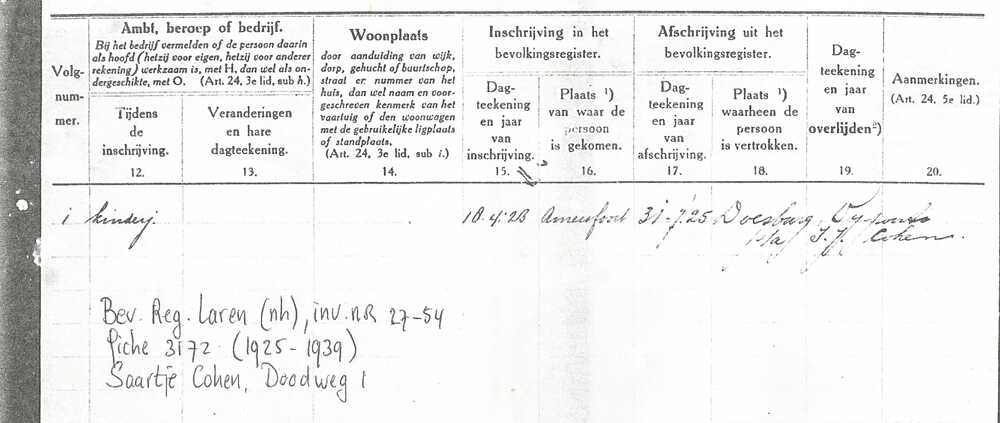 Volg-
num-
mer.
Ambt, beroep of bedrijf.
Bij het bedrijf vermelden of de persoon daarin
als hoofd (hetzij voor eigen, hetzij voor anderer
rekening) werkzaam is, met H, dan wel als on-
dergeschikte, met O. (Art. 24, 3e lid, sub h.)
Tijdens
de
inschrijving.
12.
Veranderingen
en hare
dagteekening.
13.
Woonplaats
door aanduiding van wijk,
dorp, gehucht of buurtschap,
straat en nummer van het
huis, dan wel naam en voor-
geschreven kenmerk van het
vaartuig of den woonwagen
met de gebruikelijke ligplaats
of standplaats.
(Art. 24, 3e lid, sub i.)
14.
Inschrijving in het
bevolkingsregister.
Dag-
teekening
en jaar
van
inschrijving.
15.
Plaats ¹)
van waar de
persoon
is gekomen.
16.
Afschrijving uit het
bevolkingsregister.
Dag-
teekening
en jaar
van
afschrijving.
17.
Plaats ¹)
waarheen de
persoon
is vertrokken.
18.
Dag-
teekening
en jaar
van
overlijden²)
19.
Aanmerkingen.
(Art. 24, 5e lid.)
20.
1 kinderj. 18.4.23 Amersfoort 31-7.25 Doesburg
Cohen.
Bev. Reg. Laren (nh), inv. nR 27-54
fiche 3172 (1925-1939)
Saartje Cohen, Doodweg 1